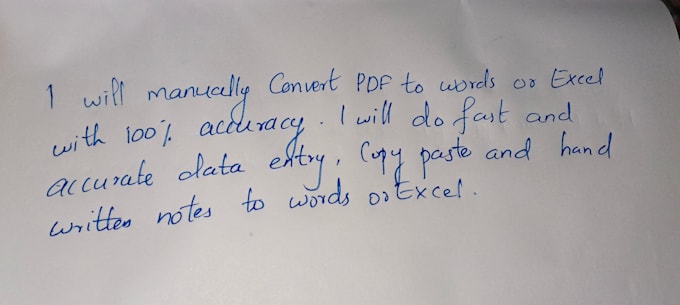 I will manually Convert PDF to words or Excel
with 100% accuracy. I will do fast and
accurate data entry, Copy paste and hand
written notes to words or Excel.